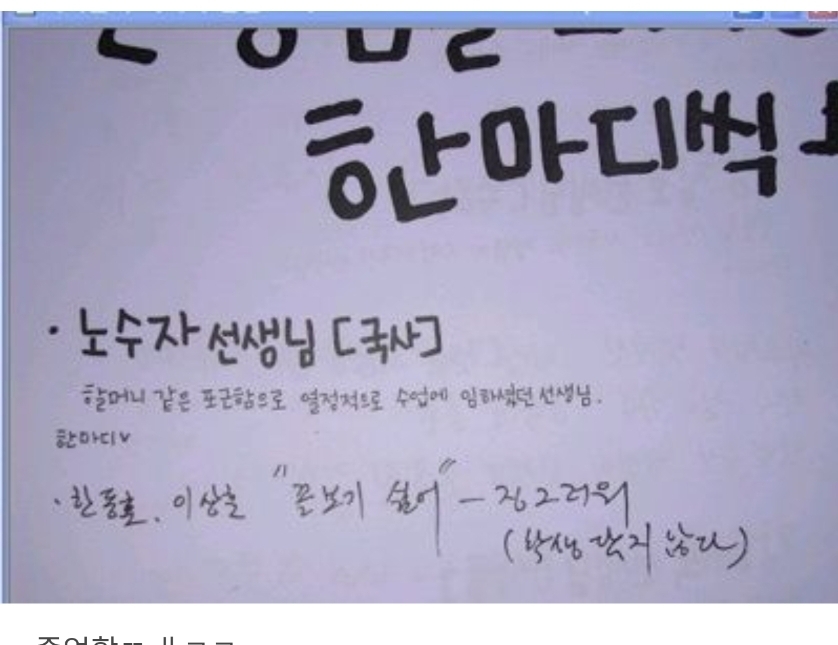 한마디씩
· 노수자 선생님 [국사]
할머니 같은 포근함으로 열정적으로 수업에 임하셨던 선생님.
한마디∨
· 한동호. 이상호 "꼴보기 싫어" – 징그러워
(학생 답지 않다)